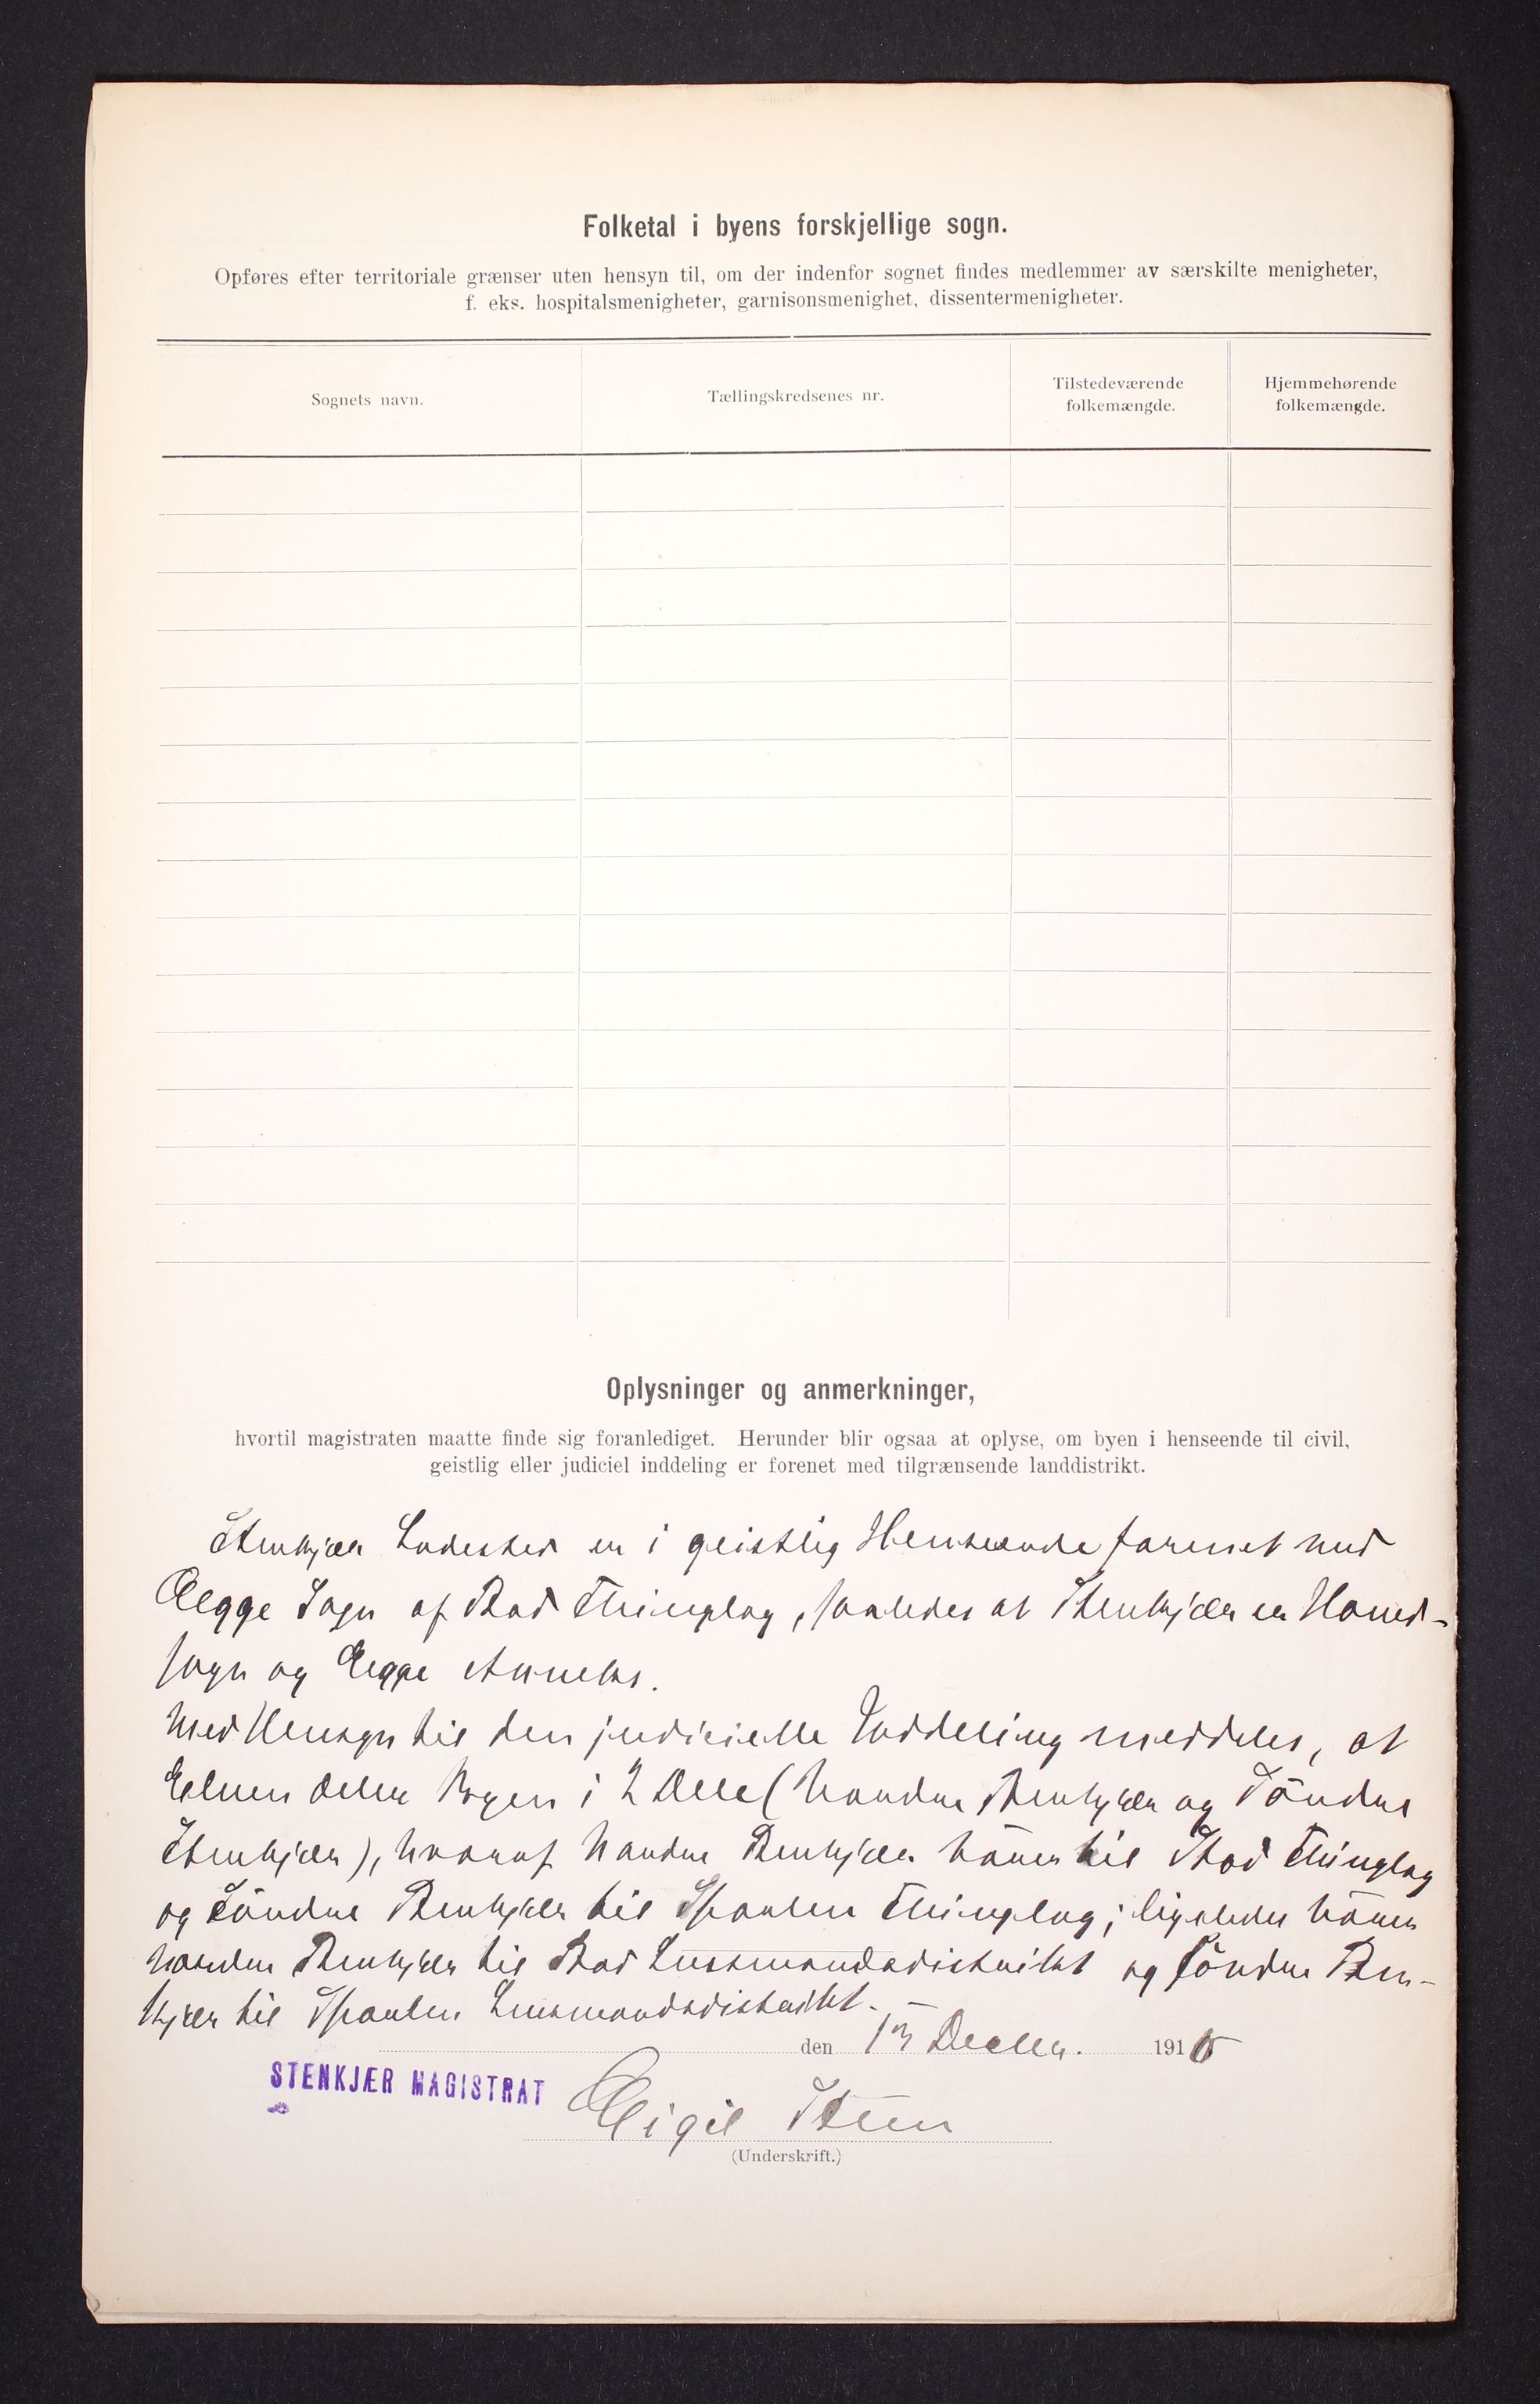 Folketal i byens forskjellige sogn.
Opføres efter territoriale grænser uten hensyn til, om der indenfor sognet findes medlemmer av særskilte menigheter,
f. eks. hospitalsmenigheter, garnisonsmenighet, dissentermenigheter.
Sognets navn.
Tællingskredsenes nr.
Tilstedeværende
folkemængde.
Hjemmehørende
folkemængde.
Oplysninger og anmerkninger,
hvortil magistraten maatte finde sig foranlediget. Herunder blir ogsaa at oplyse, om byen i henseende til civil,
geistlig eller judiciel inddeling er forenet med tilgrænsende landdistrikt.
Stenkjær Ladested er i geistlig Henseende forenet med
Egge Sogn af Stod Thinglag, saaledes at Stenkjær er Hoved-
sogn og Egge Anneks.
Med Hensyn til den judicielle Inddeling meddeles, at
Elven deler Byen i 2 Dele (Nordre Stenkjær og Söndre
Stenkjær), hvoraf Nordre Stenkjær hörer til Stod Thinglag
og Söndre Stenkjær til Sparbu Thinglag; ligeledes hörer
Nordre Stenkjær til Stod Lensmandsdistrikt og Söndre Sten-
kjær til Sparbu Lensmandsdistrikt. –
den 13 Decbr. 1910
STENKJÆR MAGISTRAT
Eigil Steen
(Underskrift.)